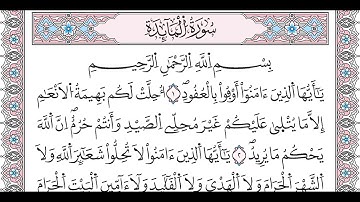 سُورَةُ المَائِدَةِ
بِسْمِ ٱللَّهِ ٱلرَّحْمَٰنِ ٱلرَّحِيمِ
يَٰٓأَيُّهَا ٱلَّذِينَ ءَامَنُوٓاْ أَوْفُواْ بِٱلْعُقُودِۖ ١ أُحِلَّتْ لَكُم بَهِيمَةُ ٱلْأَنْعَٰمِ
إِلَّا مَا يُتْلَىٰ عَلَيْكُمْ غَيْرَ مُحِلِّي ٱلصَّيْدِ وَأَنتُمْ حُرُمٌۖ إِنَّ ٱللَّهَ
يَحْكُمُ مَا يُرِيدُۖ ٢ يَٰٓأَيُّهَا ٱلَّذِينَ ءَامَنُواْ لَا تُحِلُّواْ شَعَٰٓئِرَ ٱللَّهِ وَلَا
ٱلشَّهْرَ ٱلْحَرَامَ وَلَا ٱلْهَدْيَ وَلَا ٱلْقَلَٰٓئِدَ وَلَآ ءَآمِّينَ ٱلْبَيْتَ ٱلْحَرَامَ